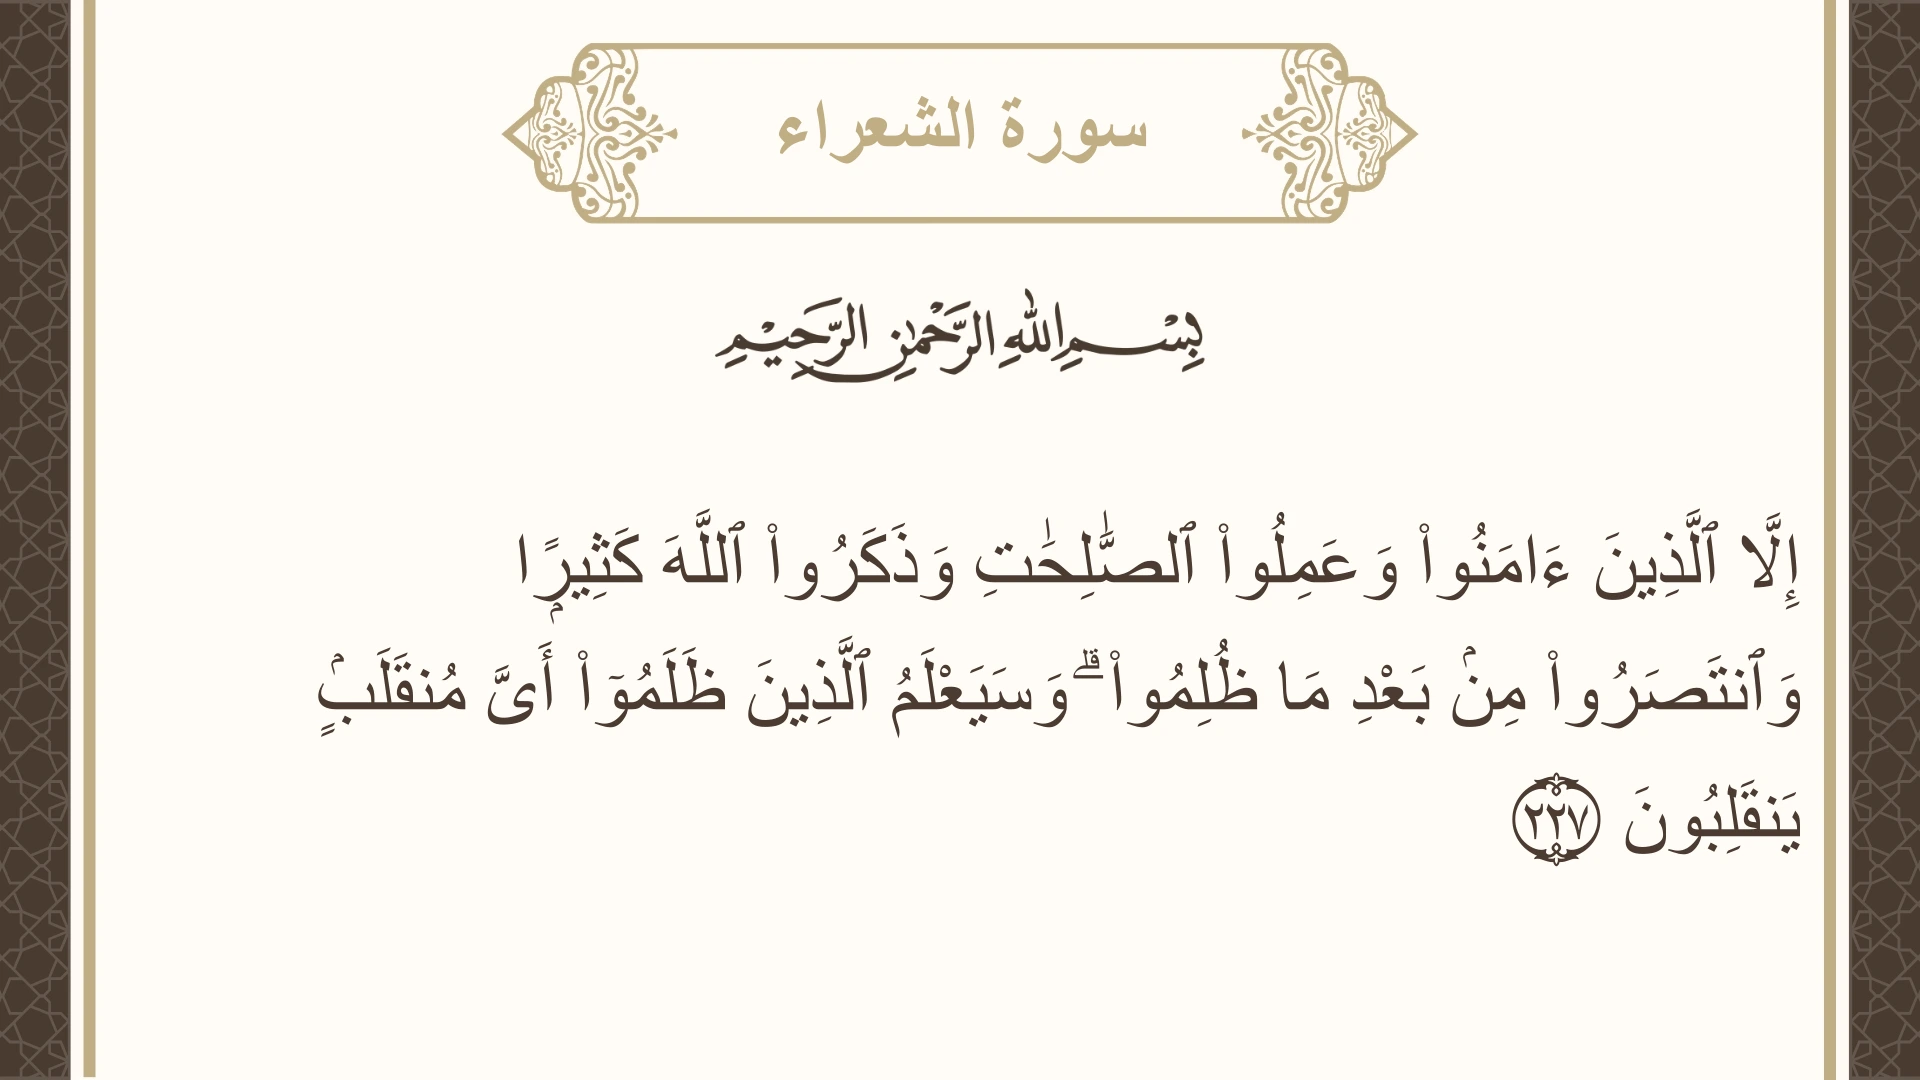 سورة الشعراء
بِسْمِ اللهِ الرَّحْمٰنِ الرَّحِيْمِ
إِلَّا ٱلَّذِينَ ءَامَنُوا۟ وَعَمِلُوا۟ ٱلصَّٰلِحَٰتِ وَذَكَرُوا۟ ٱللَّهَ كَثِيرًۭا
وَٱنتَصَرُوا۟ مِنۢ بَعْدِ مَا ظُلِمُوا۟ ۗ وَسَيَعْلَمُ ٱلَّذِينَ ظَلَمُوٓا۟ أَىَّ مُنقَلَبٍۢ
يَنقَلِبُونَ ٢٢٧